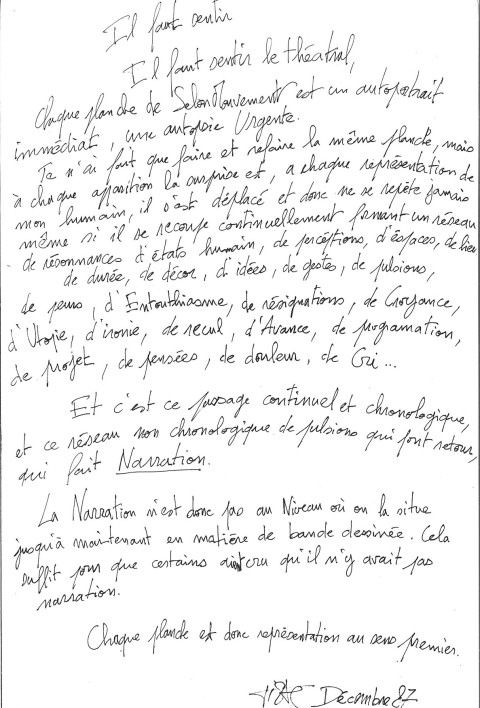 Il faut sentir
Il faut sentir le théatral,
Chaque planche de SelonMouvement est un autoportrait
immédiat, une autopsie Urgente.
Je n'ai fait que faire et refaire la même planche, mais
à chaque apparition la surprise est, a chaque représentation de
mon humain, il s'est déplacé et donc ne se repète jamais
même si il se recoupe continuellement formant un réseau
de résonnances d'états humain, de perceptions, d'espaces, de lieu
de durée, de décor, d'idées, de gestes, de pulsions,
de peurs, d'Entouthiasme, de résignations, de Croyance,
d'Utopie, d'ironie, de recul, d'Avance, de programation,
de projet, de pensées, de douleur, de Cri...
Et c'est ce passage continuel et chronologique,
et ce réseau non chronologique de pulsions qui font retour,
qui fait Narration.
La Narration n'est donc pas au Niveau où on la situe
jusqu'à maintenant en matière de bande dessinée. Cela
suffit pour que certains aient cru qu'il n'y avait pas
narration.
Chaque planche est donc représentation au sens premier.
Décembre 87